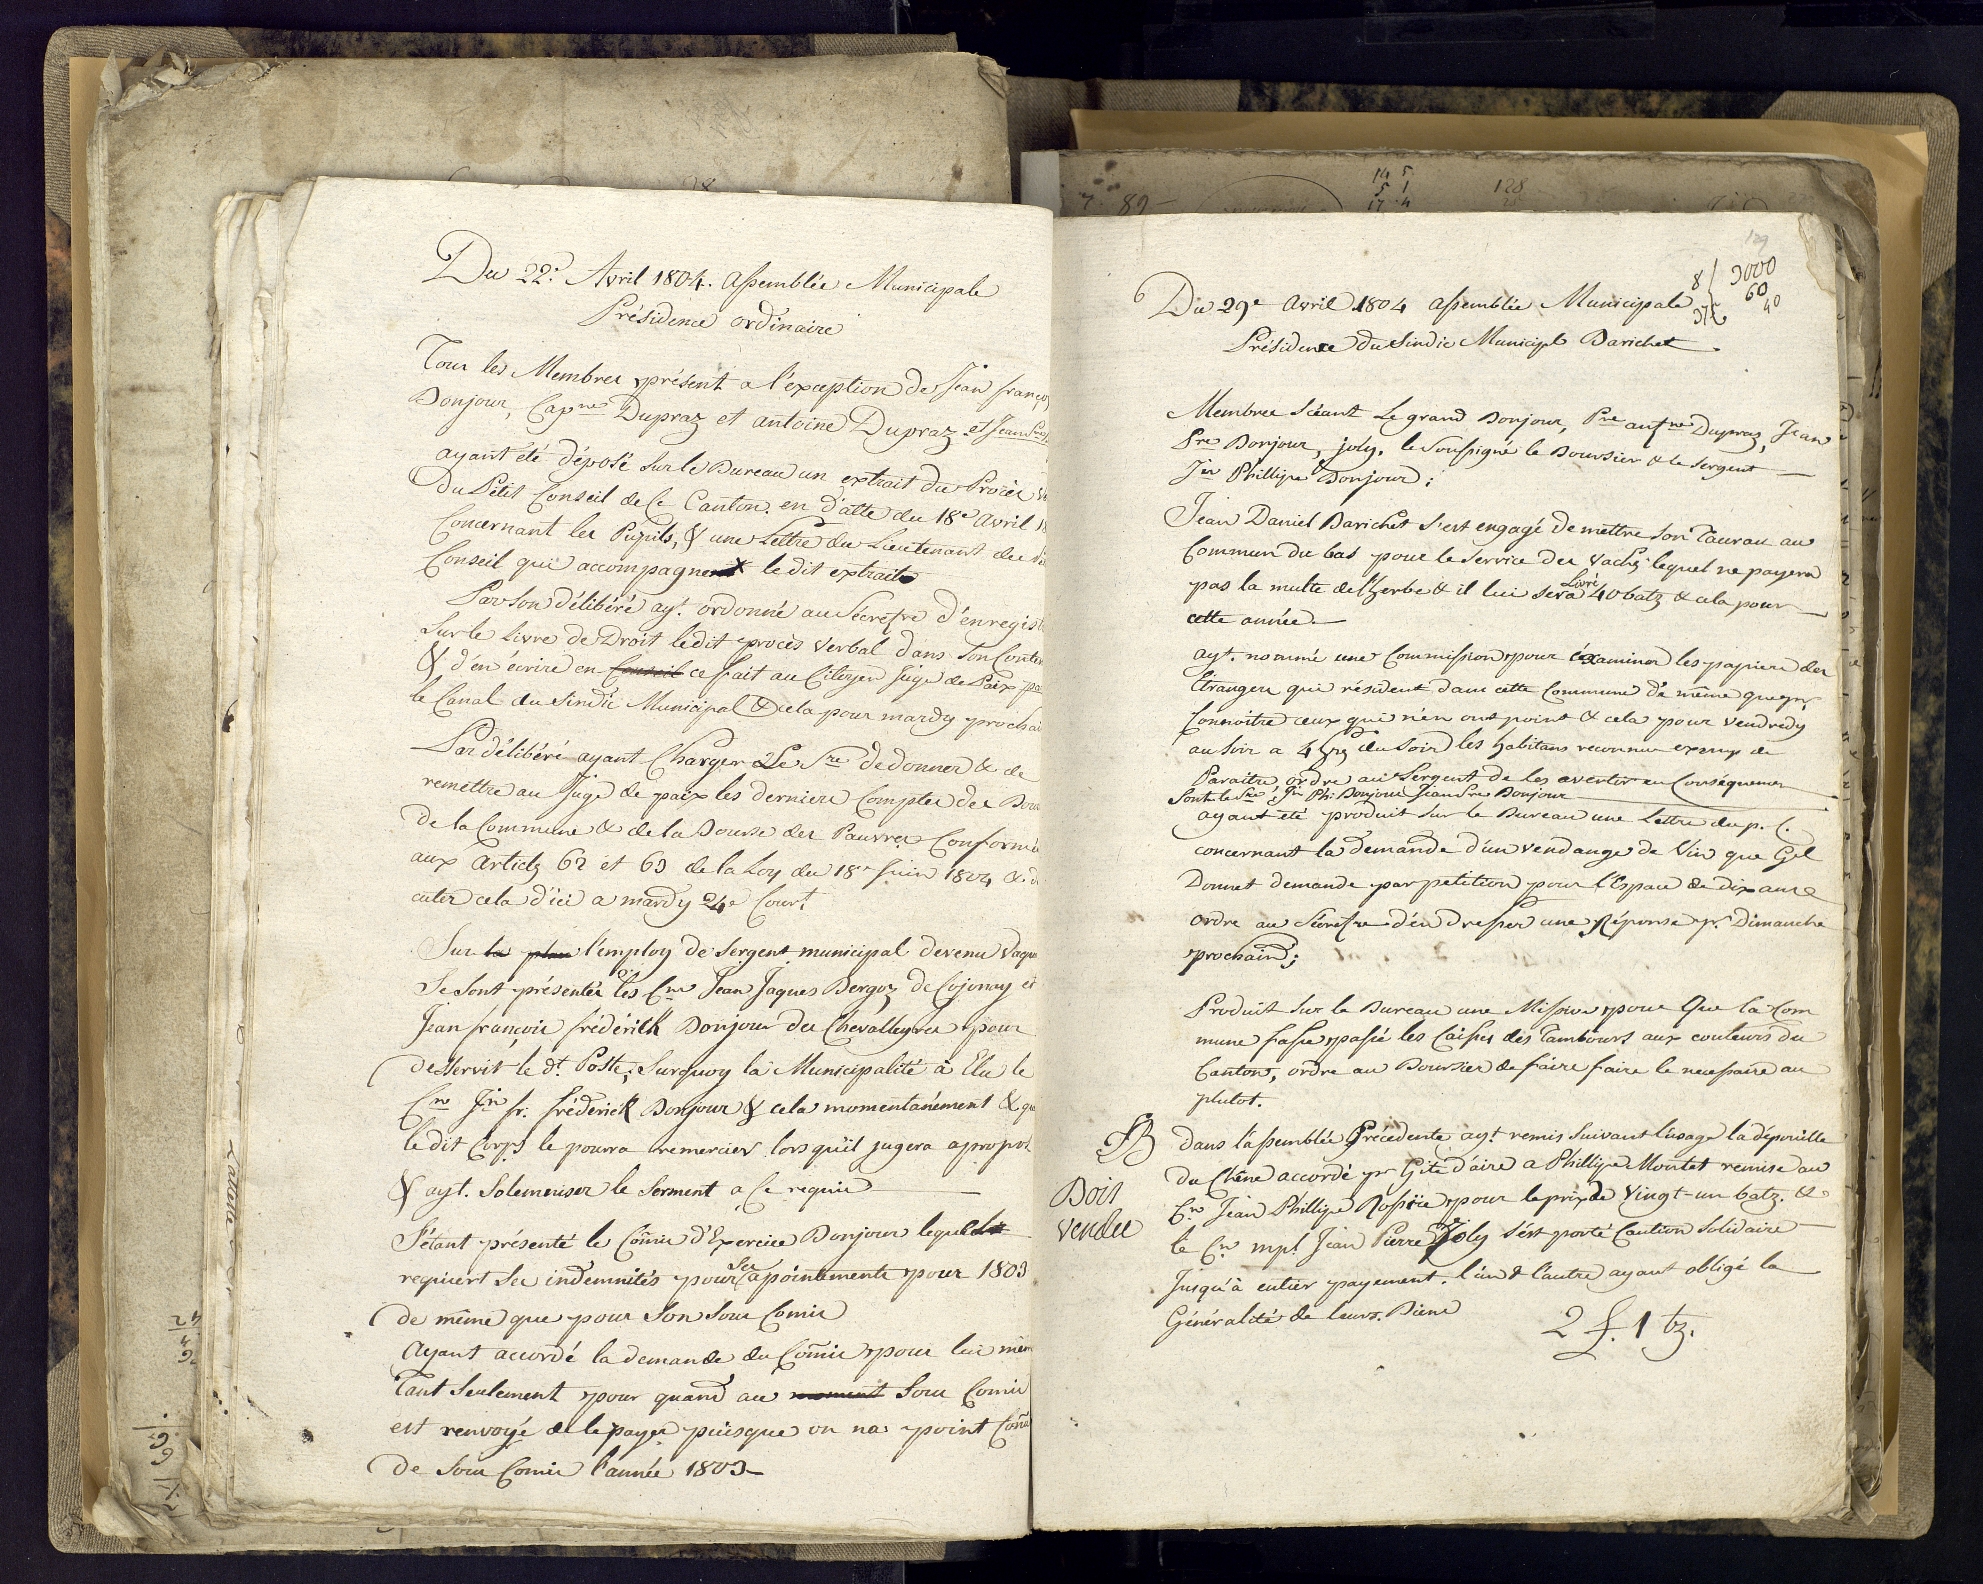 Du 22e. Avril 1804. assemblée Municipale
Présidence ordinaire
Tous les Membres présent a l'éxception de Jean franço
Bonjour, Capne Dupraz et antoine Dupraz et Jean
ayant été déposé Sur le Bureau un extrait du Procès
Du Petit Conseil de Ce Canton. en d'atte du 18e avril
Concernant les Pupils, & une Lettre du Lieutenant du
Conseil qui accompagne le dit extrait
Par Son délibéré ayt. ordonné au Sécretre d'énregist
Sur le Livre de Droit ledit procès verbal dans Son Conten
& d'en écrire en Conseil ce fait au Citoyen Juge de Paix pa
le Canal du Sindic Municipal & cela pour mardy prochai
Par délibéré ayant Charger Le Sre de donner & de
remettre au Juge de paix les derniers Comptes des Bou
De la Commune & de la Bourse des Pauvres Conformé
aux articlz 62 et 63 de la Loy du 18e Juin 1804 &
cuter cela d'ici a mardy 24e Court
Sur la plan l'employ de Sergent municipal devenu Vaqu
Se Sont présentés les Cns Jean Jaques Bergoz de Cojonay et
Jean françois frédérich Bonjour du Chevalleyres pour
desservir le dt. Poste; Surquoy la Municipalité à Elu le
Cn Jn fr. frédérick Bonjour & cela momentanément & qu
ledit Corps le pourra remercier lorsqu'il jugera apropos
& ayt. Solemniser le Serment a Ce requis
S'étant présenté le Comis d'Exercice Bonjour lequel
requiert Ses indemnités pour Ses apointements pour 1803
de même que pour Son Sous Comis
Ayant accordé la demande du Comis pour lui mêm
Tant Seulement pour quand au moment Sous Comis
est renvoyé de le payer puisque on na point
De Sous Comis l'année 1803
129
8 / 3000
60
40
375
6
Du 29e avril 1804 assemblée Municipale
Présidence du Sindic Municipl Barichet
Membres Scéant Le grand Bonjour, Pre antne Dupraz, Jean
Fre Bonjour, joly, le Soussigné le Boursier & le Sergent
Jn Phillipe Bonjour;
Jean Daniel Barichet S'est engagé de mettre Son Taurau au
Commun du bas pour le Service des Vachs lequel ne payera
pas la multe de l'herbe & il lui sera Livré 40 batz & cela pour
cette année
ayt. nommé une Commission pour éxaminer les papiers des
Etrangers qui résident dans cette Commune de même que pr
Connoitre ceux qui n'en ont point & cela pour Vendredy
au Soir a 4 hrs du Soir les habitans reconnu exemp de
Paraitre ordre au Sergent de les avertir en Conséquence
Sont le Sre, Jn Ph: Bonjour Jean Fre Bonjour
ayant été produit Sur le Bureau une Lettre du p. C.
concernant la demande d'un Vendange de Vin que Gel
Donnet demande par petition pour l'Espace de dix ans
ordre au Sécretre d'en dresser une Réponse pr. Dimanche
prochain;
Produit Sur le Bureau une Missive pour Que la Com
mune fasse passé les Caisses des Tambours aux couleurs du
Canton, ordre au Boursier de faire faire le necessaire au
plutot.
NB dans l'assemblée Précédente ayt. remis Suivant l'usage la dépouille
du Chêne accordé pr Gite d'aire a Phillipe Montet remise au
Bois
vendu
Cn Jean Phillipe Rossie pour le prix de Vingt-un batz. &
le Cn mpl Jean Pierre Joly s'est porté Caution Solidaire
Jusqu'à entier payement. l'un & l'autre ayant obligé la
Généralité de leurs. Biens
2 f. 1 bz.